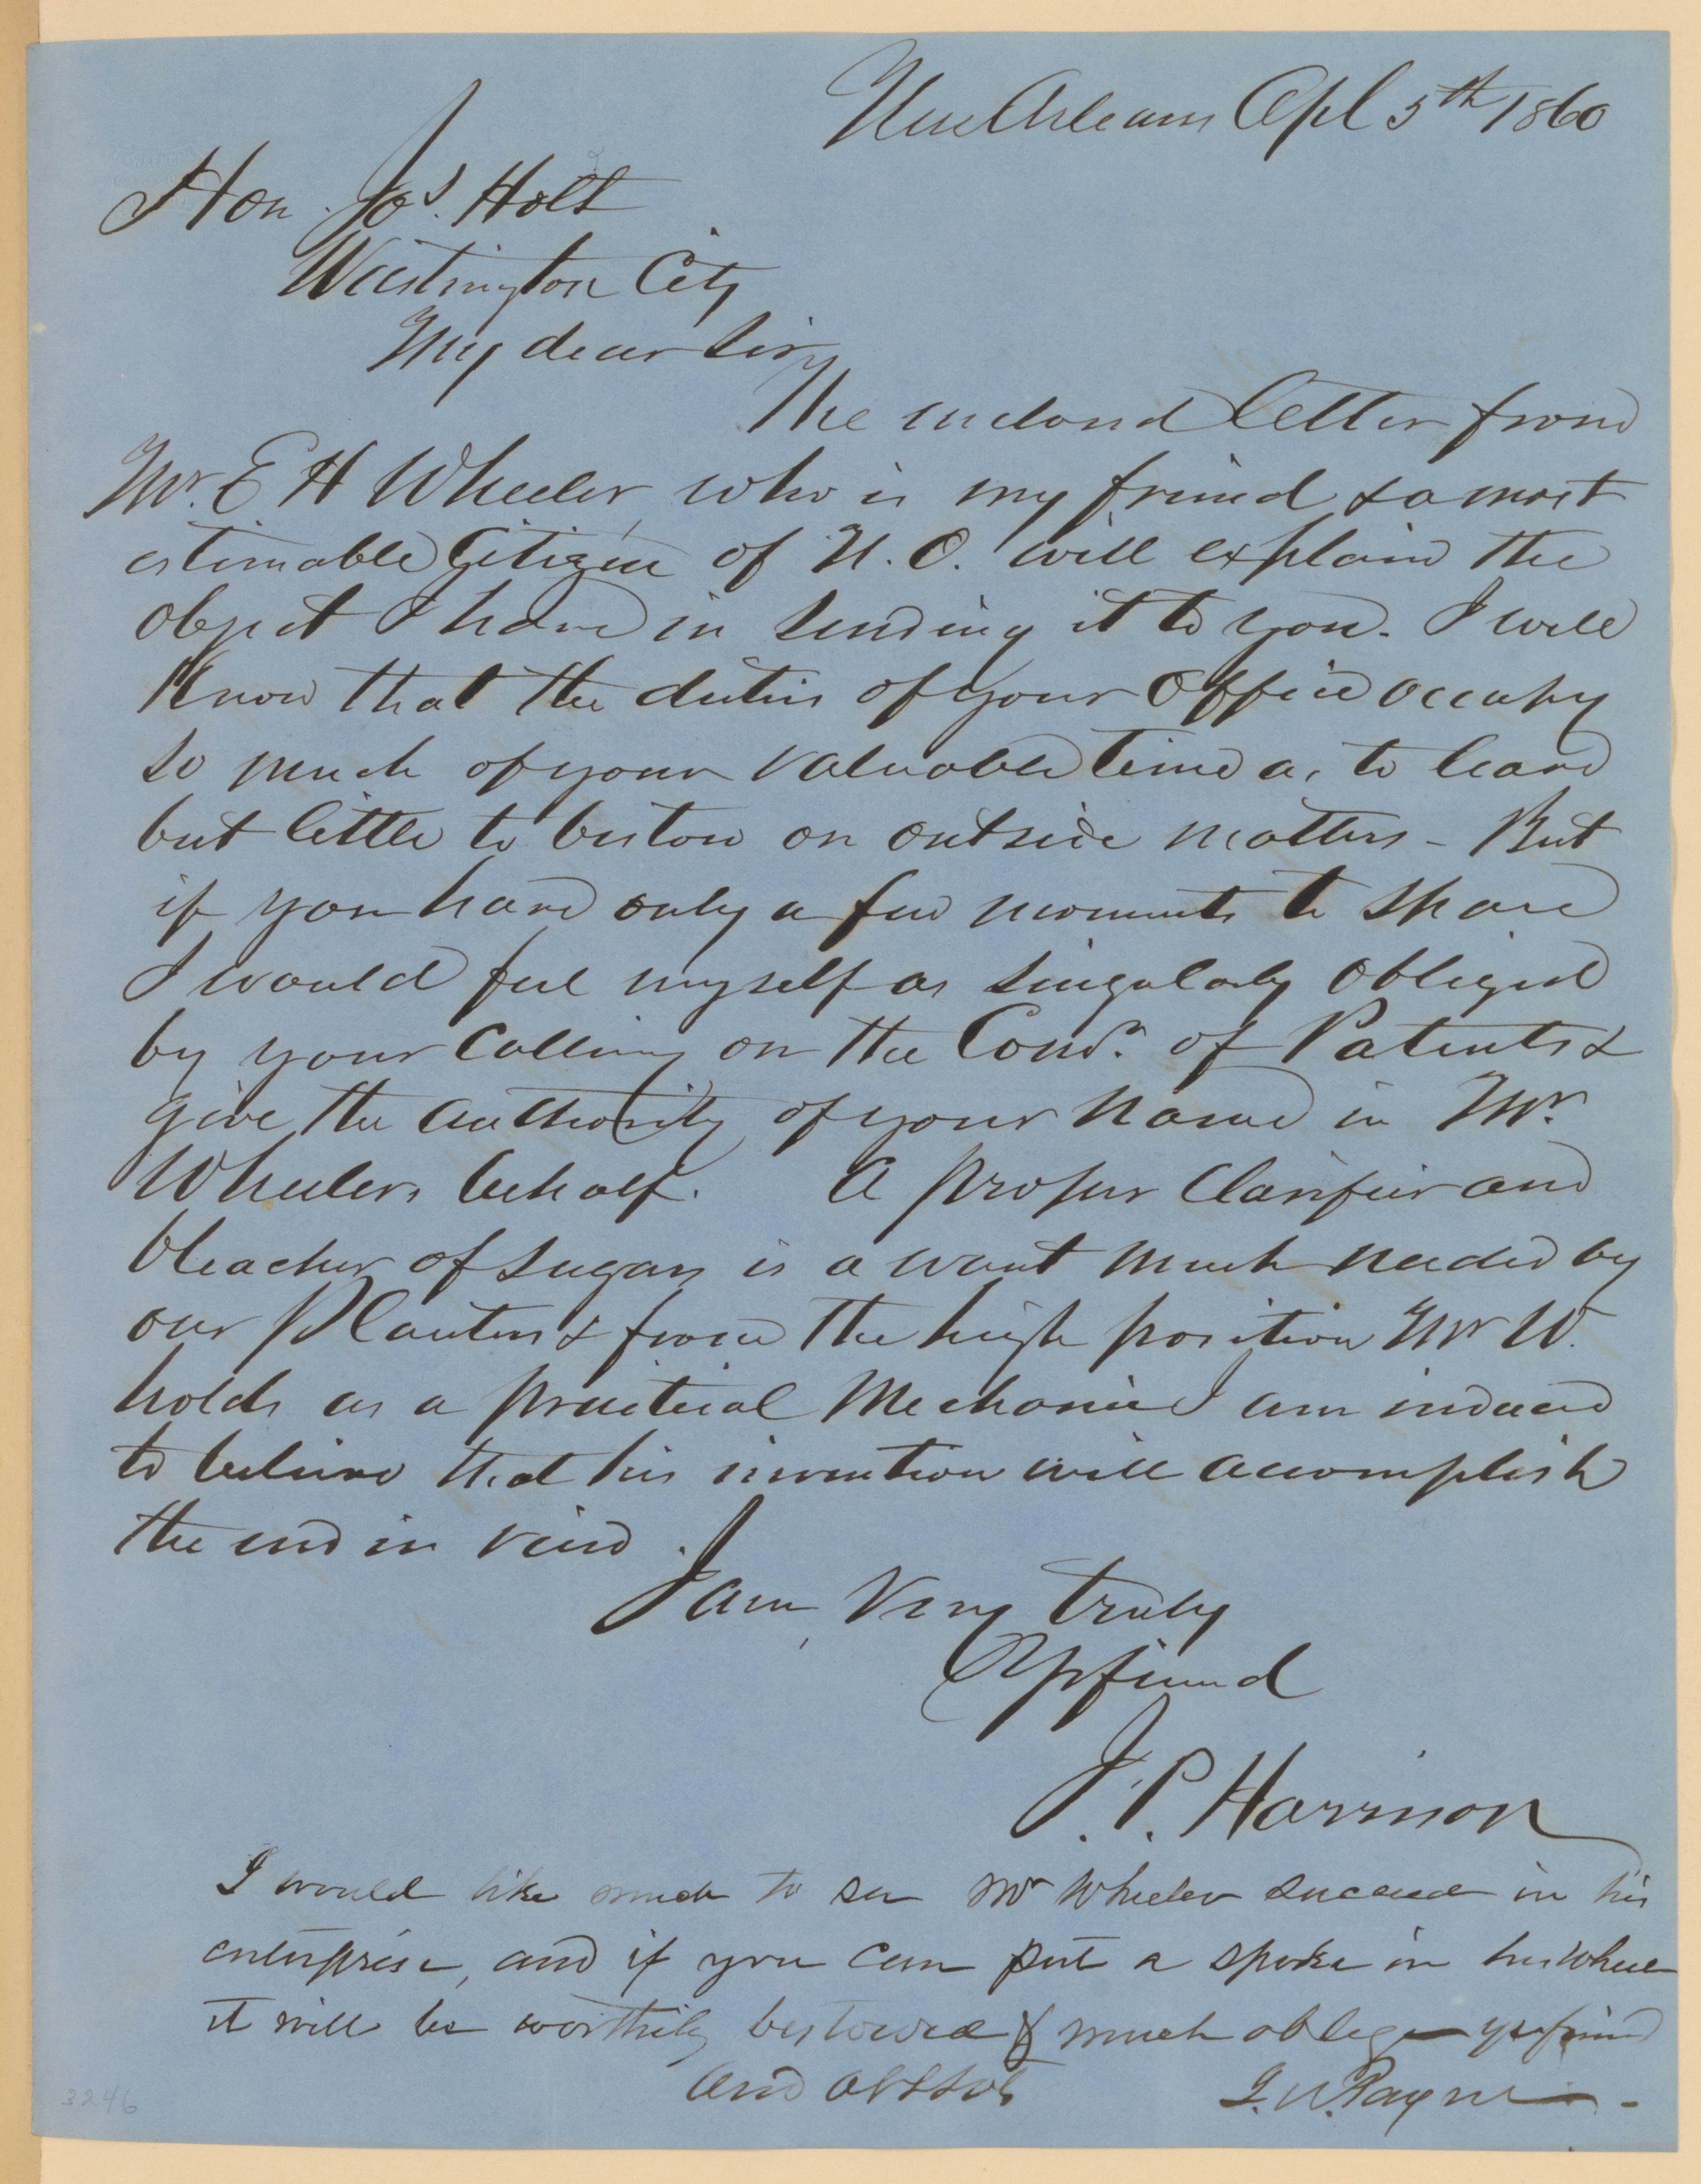 New Orleans Apl 5th 1860
Hon. Jos. Holt
Washington City
My dear Sir,
The inclosed letter from
Mr. E H Wheeler, who is my friend & a most
estimable Citizen of N. O. will explain the
object I have in sending it to you. I well
Know that the duties of your Office occupy
so much of your valuable time as to leave
but little to bestow on outside matters - But
if you have only a few moments to spare
I would feel myself as singularly obliged
by your Calling on the Comr. of Patents &
give the authority of your name in Mr.
Wheelers behalf. A proper Clarifier and
bleacher of sugars is a want much needed by
our Planters & from the high position Mr W.
holds as a practical Mechanic I am induced
to believe that his invention will accomplish
the end in view.
I am Very truly
Yr friend
J. P. Harrison
I would like much to see Mr Wheeler succeed in his
enterprise, and if you can put a spoke in his Wheel
it will be worthily bestowed & much oblige yr friend
and obt Svt
J. W. Payne -
3246